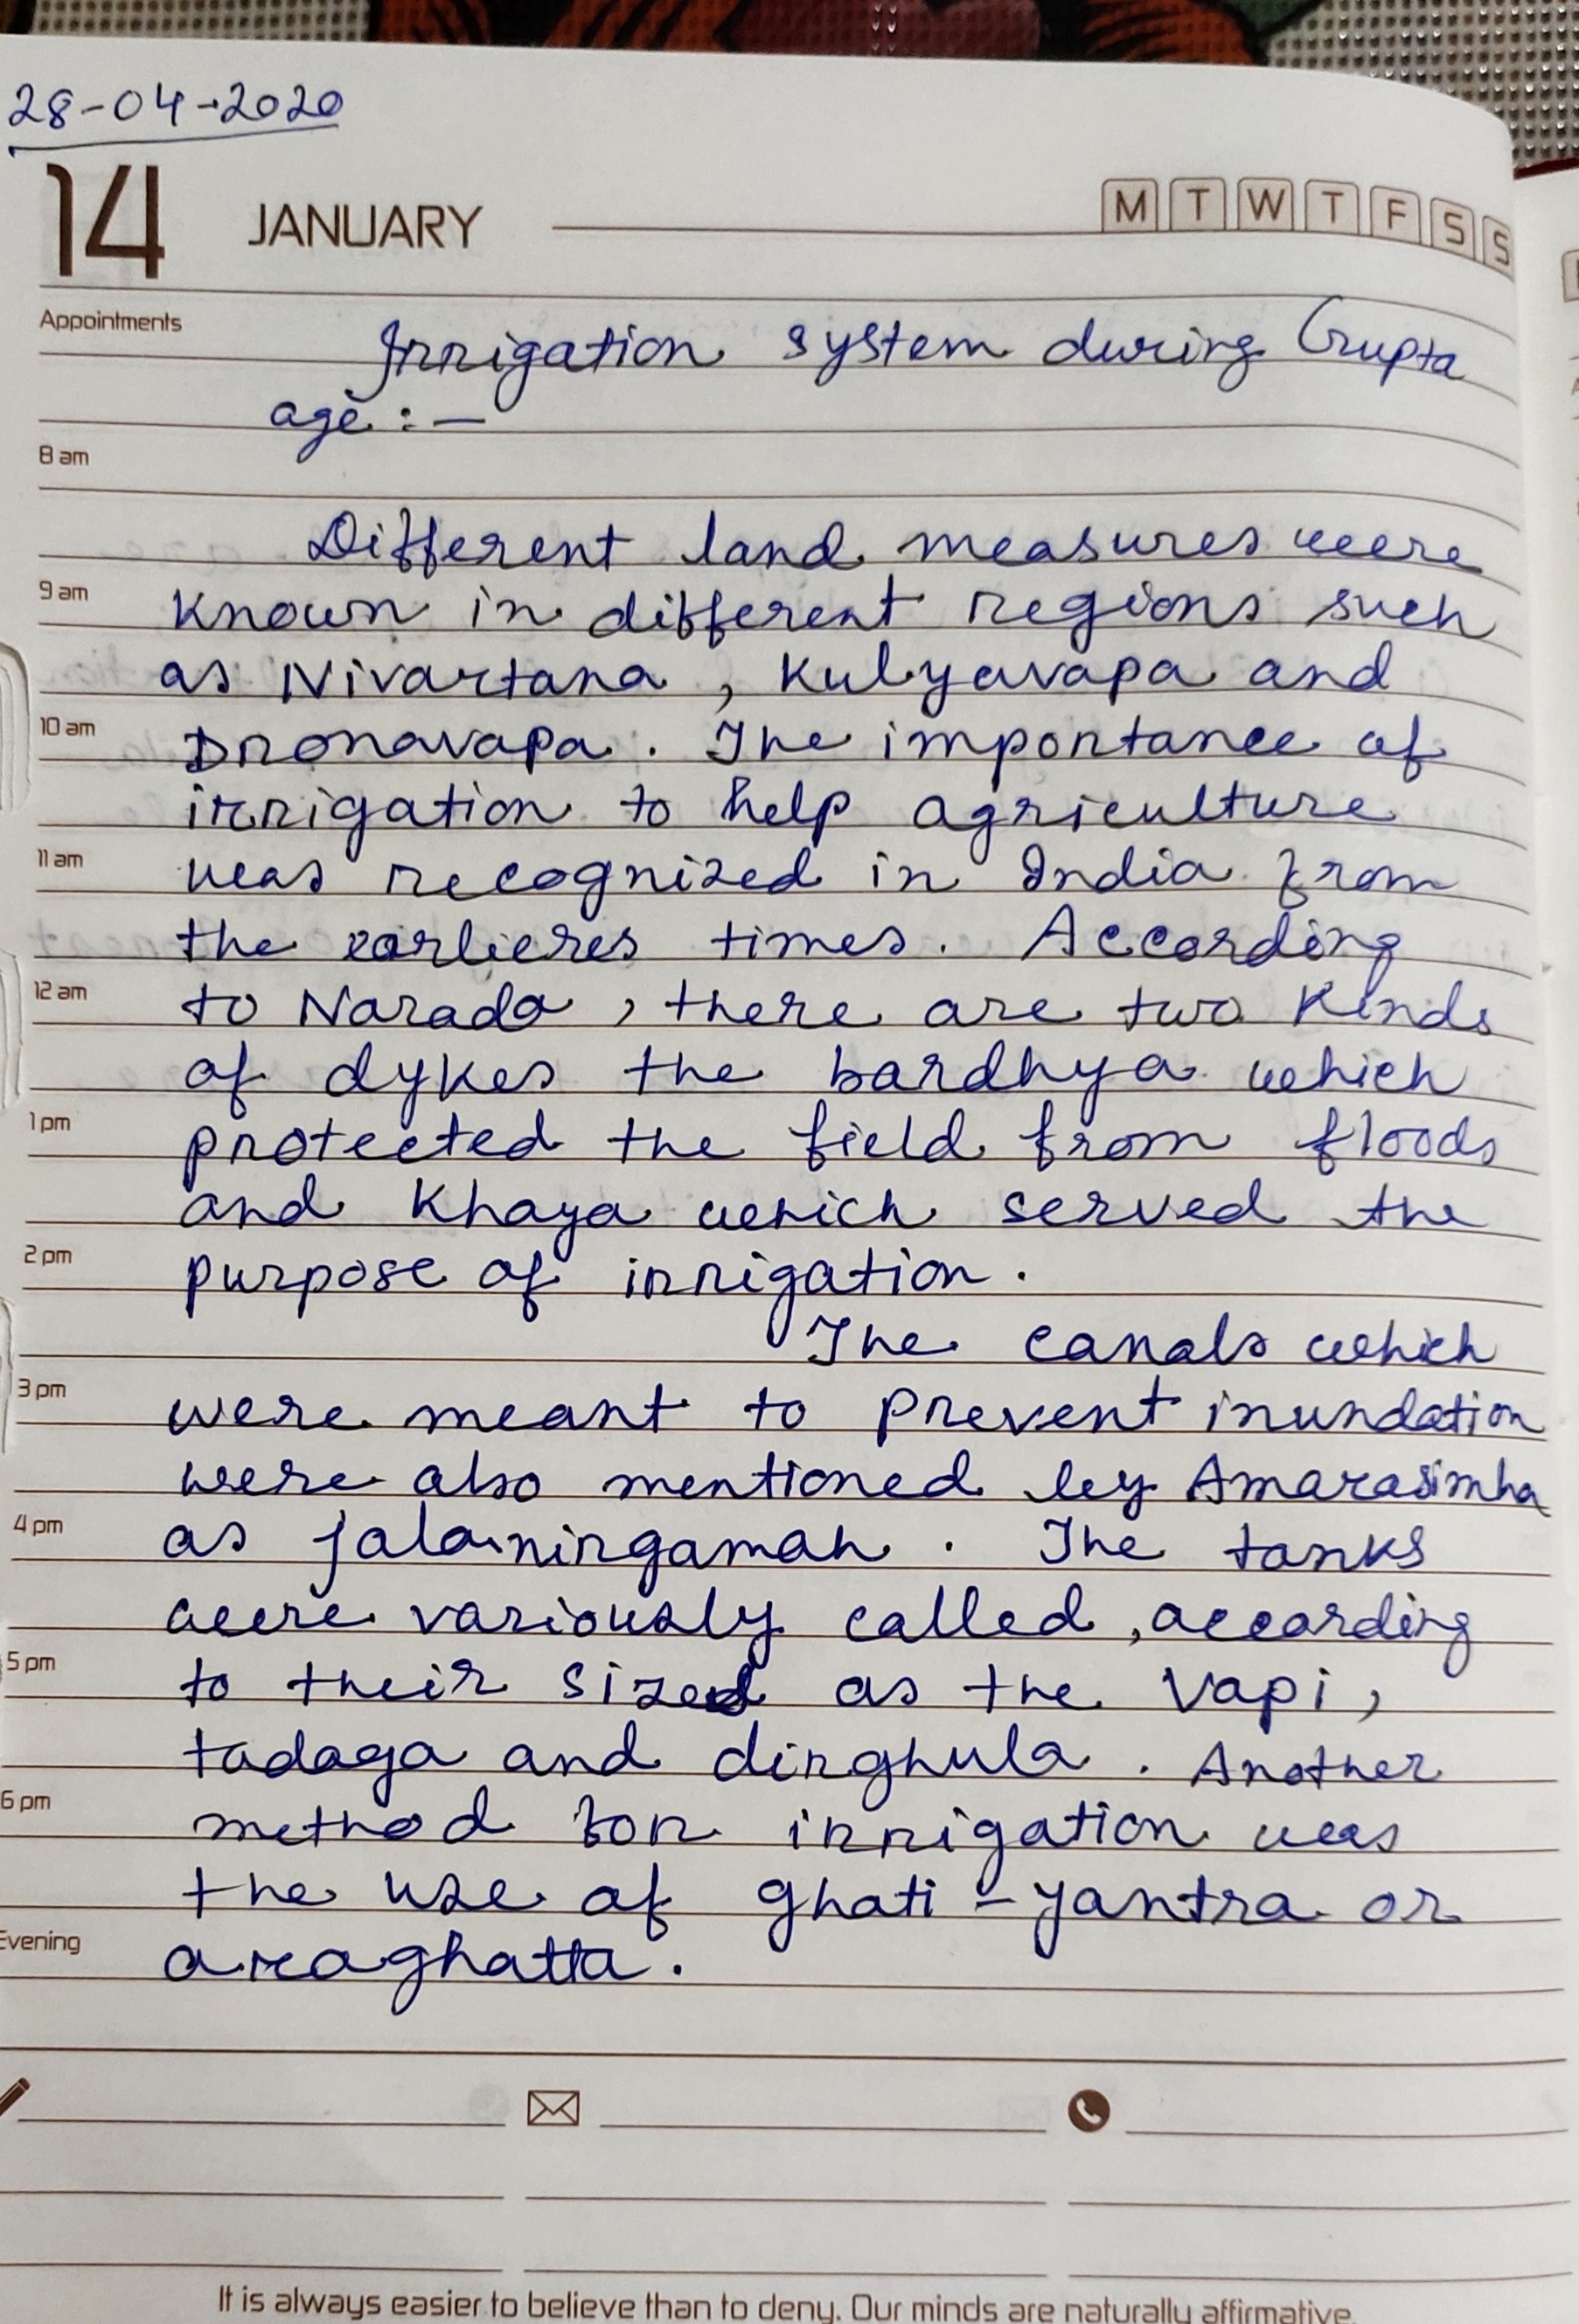 28-04-2020
14 JANUARY M T W T F S S
Appointments
Irrigation system during Gupta
age :-
8 am
Different land measures were
9 am
known in different regions such
as Nivartana, Kulyavapa and
10 am
Dronavapa. The importance of
irrigation to help agriculture
11 am
was recognized in India from
the earlieres times. According
12 am
to Narada, there are two kinds
of dykes the bardhya which
1 pm
protected the field from floods
and Khaya which served the
2 pm
purpose of irrigation.
The canals which
3 pm
were meant to prevent inundation
were also mentioned by Amarasimha
4 pm
as jalanirgamah. The tanks
were variously called, according
5 pm
to their sized as the Vapi,
tadaga and dirghula. Another
6 pm
method for irrigation was
the use of ghati-yantra or
Evening
araghatta.
It is always easier to believe than to deny. Our minds are naturally affirmative.